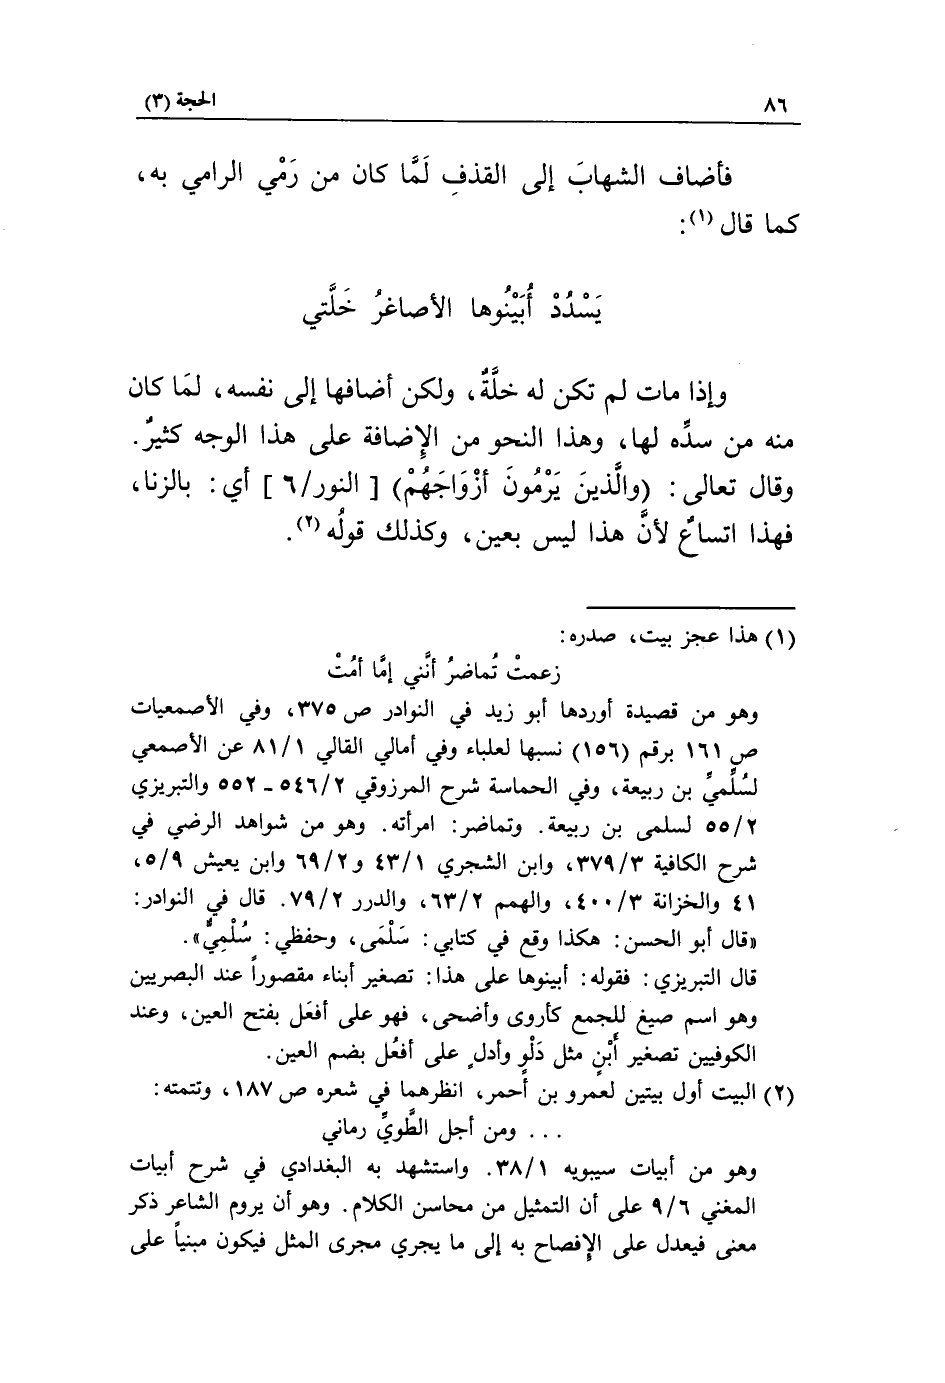 ٨٦ الحجة (٣)
فأضاف الشهابَ إلى القذفِ لَمَّا كان من رَمْي الرامي به،
كما قال (١):
يَسْدُدْ أُبَيْنُوها الأصاغرُ خَلَّتي
وإذا مات لم تكن له خلَّةٌ، ولكن أضافها إلى نفسه، لمَا كان
منه من سدِّه لها، وهذا النحو من الإِضافة على هذا الوجه كثيرٌ.
وقال تعالى: (والَّذينَ يَرْمُونَ أزْوَاجَهُمْ) [ النور/٦ ] أي: بالزنا،
فهذا اتساعٌ لأنَّ هذا ليس بعين، وكذلك قولُه (٢).
(١) هذا عجز بيت، صدره:
زعمتْ تُماضرُ أنَّني إمَّا أمُتْ
وهو من قصيدة أوردها أبو زيد في النوادر ص ٣٧٥، وفي الأصمعيات
ص ١٦١ برقم (١٥٦) نسبها لعلباء وفي أمالي القالي ٨١/١ عن الأصمعي
لسُلْمِيِّ بن ربيعة، وفي الحماسة شرح المرزوقي ٥٤٦/٢ - ٥٥٢ والتبريزي
٥٥/٢ لسلمى بن ربيعة. وتماضر: امرأته. وهو من شواهد الرضي في
شرح الكافية ٣٧٩/٣، وابن الشجري ٤٣/١ و٦٩/٢ وابن يعيش ٥/٩،
٤١ والخزانة ٤٠٠/٣، والهمع ٦٣/٢، والدرر ٧٩/٢. قال في النوادر:
«قال أبو الحسن: هكذا وقع في كتابي: سَلْمَى، وحفظي: سُلْمِيٌّ».
قال التبريزي: فقوله: أبينوها على هذا: تصغير أبناء مقصوراً عند البصريين
وهو اسم صيغ للجمع كأروى وأضحى، فهو على أفعَل بفتح العين، وعند
الكوفيين تصغير أَبْنٍ مثل دَلْوٍ وأدلٍ على أفعُل بضم العين.
(٢) البيت أول بيتين لعمرو بن أحمر، انظرهما في شعره ص ١٨٧، وتتمته:
... ومن أجل الطَّويِّ رماني
وهو من أبيات سيبويه ٣٨/١. واستشهد به البغدادي في شرح أبيات
المغني ٩/٦ على أن التمثيل من محاسن الكلام. وهو أن يروم الشاعر ذكر
معنى فيعدل على الإِفصاح به إلى ما يجري مجرى المثل فيكون مبنياً على